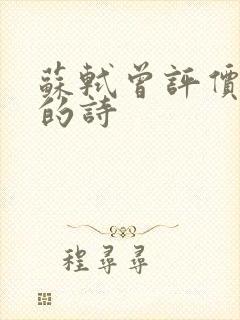 蘇軾曾評價
的詩
程尋尋